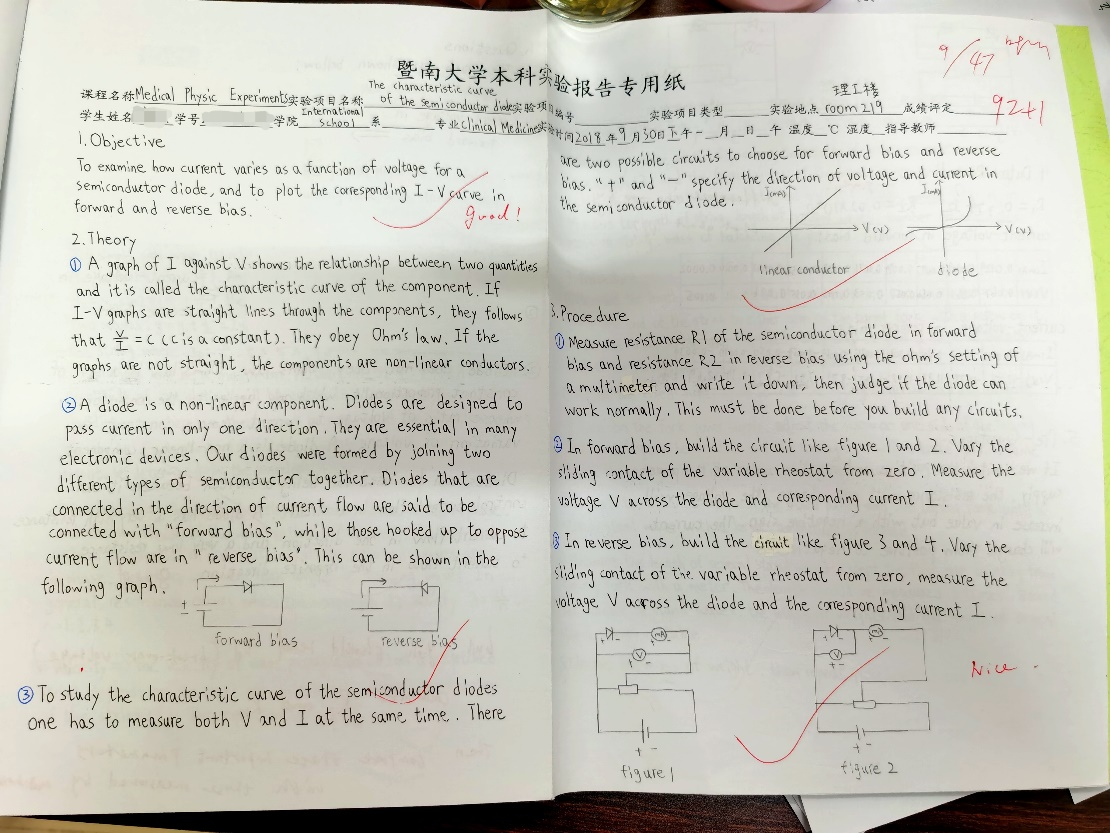 暨南大学本科实验报告专用纸
课程名称 Medical Physic Experiments 实验项目名称 The characteristic curve of the semiconductor diode 实验项目编号 实验项目类型 实验地点 理工楼 room 219 成绩评定 92+1
学生姓名 学号 学院 International school 系 专业 Clinical Medicine 实验时间 2018年9月30日下午~ 月 日 午 温度 ℃ 湿度 指导教师
9/47
1. Objective
To examine how current varies as a function of voltage for a
semiconductor diode, and to plot the corresponding I-V curve in
forward and reverse bias.
good!
2. Theory
① A graph of I against V shows the relationship between two quantities
and it is called the characteristic curve of the component. If
I-V graphs are straight lines through the components, they follows
that V/I = C (C is a constant). They obey Ohm's law. If the
graphs are not straight, the components are non-linear conductors.
② A diode is a non-linear component. Diodes are designed to
pass current in only one direction. They are essential in many
electronic devices. Our diodes were formed by joining two
different types of semiconductor together. Diodes that are
connected in the direction of current flow are said to be
connected with "forward bias", while those hooked up to oppose
current flow are in "reverse bias". This can be shown in the
following graph.
+ -
forward bias reverse bias
③ To study the characteristic curve of the semiconductor diodes
one has to measure both V and I at the same time. There
are two possible circuits to choose for forward bias and reverse
bias. "+" and "-" specify the direction of voltage and current in
the semiconductor diode.
I(mA) V(V) I(mA) V(V)
linear conductor diode
3. Procedure
① Measure resistance R1 of the semiconductor diode in forward
bias and resistance R2 in reverse bias using the ohm's setting of
a multimeter and write it down, then judge if the diode can
work normally. This must be done before you build any circuits.
② In forward bias, build the circuit like figure 1 and 2. Vary the
sliding contact of the variable rheostat from zero. Measure the
voltage V across the diode and corresponding current I.
③ In reverse bias, build the circuit like figure 3 and 4. Vary the
sliding contact of the variable rheostat from zero, measure the
voltage V across the diode and the corresponding current I.
+ - mA + - mA
V V
+ - + -
+ - + -
figure 1 figure 2
Nice